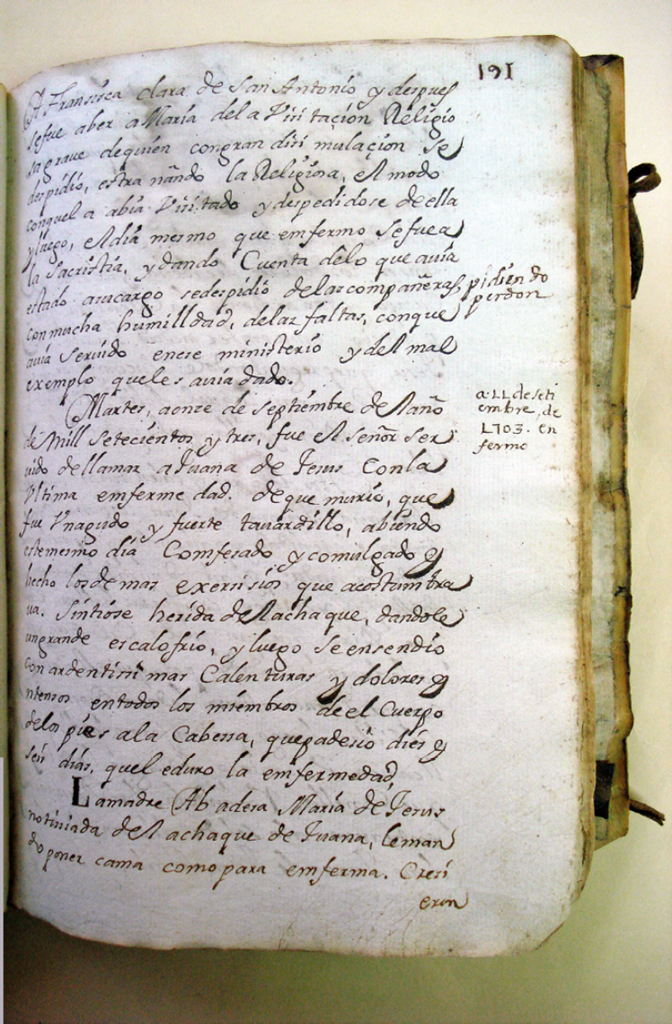 191
A Francisca clara de San Antonio y despues
sefue aber a Maria dela Visitacion Religio
sa grave dequien congran disi mulaçion se
despidio, estra nãndo la Religiosa, el modo
conquel a abia Visitado y despedidose de ella
y luego, el dia mesmo que emfermo sefuea
la Sacristia, y dando Cuenta delo que auia
estado asucargo sedespidio delas compañeras, pidiendo
perdon
con mucha humilldad, delas faltas, conque
auia Seruido enese ministerio y del mal
exemplo queles auia dado.
Martes, aonse de septiembre del año
de Mill Setecientos y tres, fue el Señor Ser
uido dellamar a Juana de Jesus Conla
Vltima emferme dad. deque murio, que
fue Vnagudo y fuerte tauardillo, abiendo
estemesmo dia Comfesado y comulgado y
hecho los demas exersisios que acostumbra
ua. Sintiose herida del achaque, dandole
ungrande escalofrio, y luego se ensendio
con ardentissi mas Calenturas y dolores y
ntensos entodos los miembros de el Cuerpo
delos pies ala Cabessa, quepadesio diés y
seis dias, quel eduro la emfermedad
La madre Ab adesa Maria de Jesus
notisiada del achaque de Juana, leman
do poner cama como para emferma. Cresi
eron
a 11 de seti
embre, de
1703. en
fermo